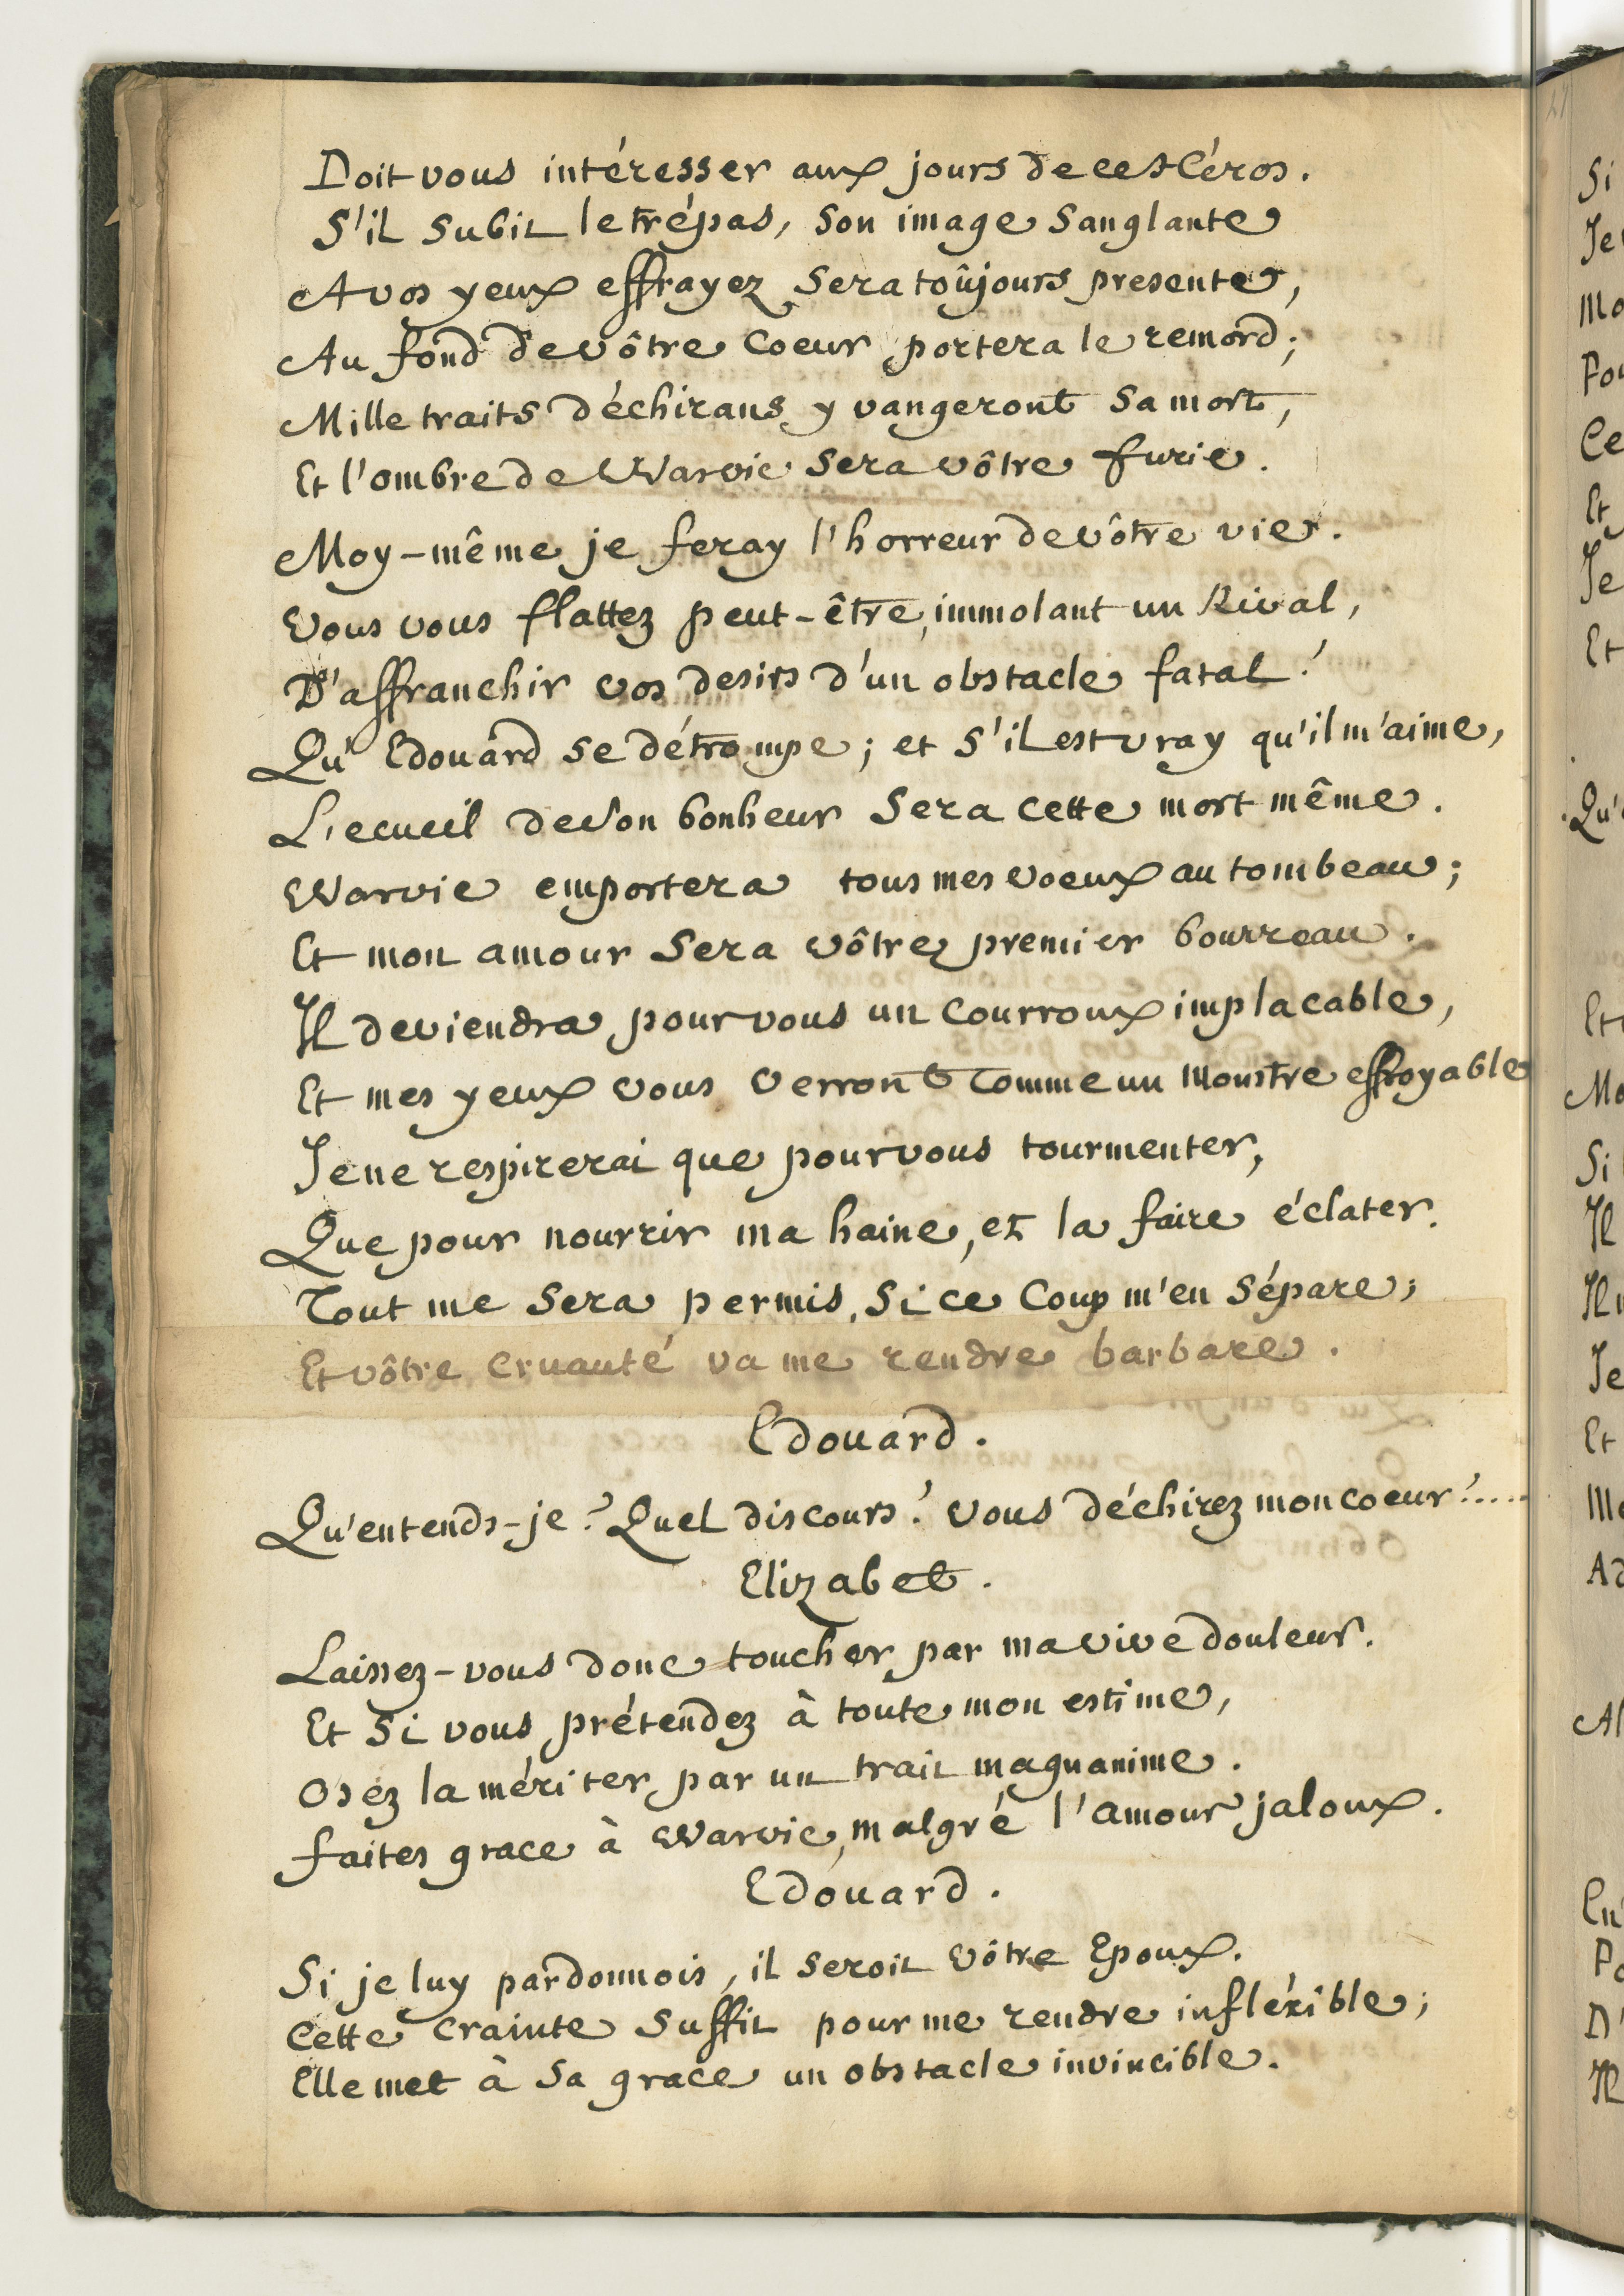 Doit vous intéresser aux jours de ce Héros.
S'il subit le trépas, son image sanglante
A vos yeux effrayez sera toûjours presente,
Au fond de vôtre coeur portera le remord;
Mille traits déchirans y vangeront sa mort,
Et l'ombre de Warvic sera vôtre furie.
Moy-même je feray l'horreur de vôtre vie.
Vous vous flattez peut-être, immolant un Rival,
D'affranchir vos desirs d'un obstacle fatal!
Qu'Edouard se détrompe; et s'il est vray qu'il m'aime,
L'ecueil de son bonheur sera cette mort même.
Warvic emportera tous mes voeux au tombeau;
Et mon amour sera vôtre premier bourreau.
Il deviendra pour vous un courroux implacable,
Et mes yeux vous verront comme un Monstre effroyable
Je ne respirerai que pour vous tourmenter,
Que pour nourrir ma haine, et la faire éclater.
Tout me sera permis, si ce coup m'en sépare;
Et vôtre cruauté va me rendre barbare.
Edouard.
Qu'entends-je? Quel discours! vous déchirez mon coeur!.....
Elizabet.
Laissez-vous donc toucher par ma vive douleur.
Et si vous prétendez à toute mon estime,
Osez la mériter par un trait magnanime.
faites grace à Warvic, malgré l'amour jaloux.
Edouard.
Si je luy pardonnois, il seroit vôtre Epoux.
Cette crainte suffit pour me rendre infléxible;
Elle met à sa grace un obstacle invincible.
Si
Je
Mo
Pou
Ce
Et
Je
Et
Qu'
Et
Mo
Si
Il
Il
Je
Et
Me
Ad
Al
En
Po
D'
Il